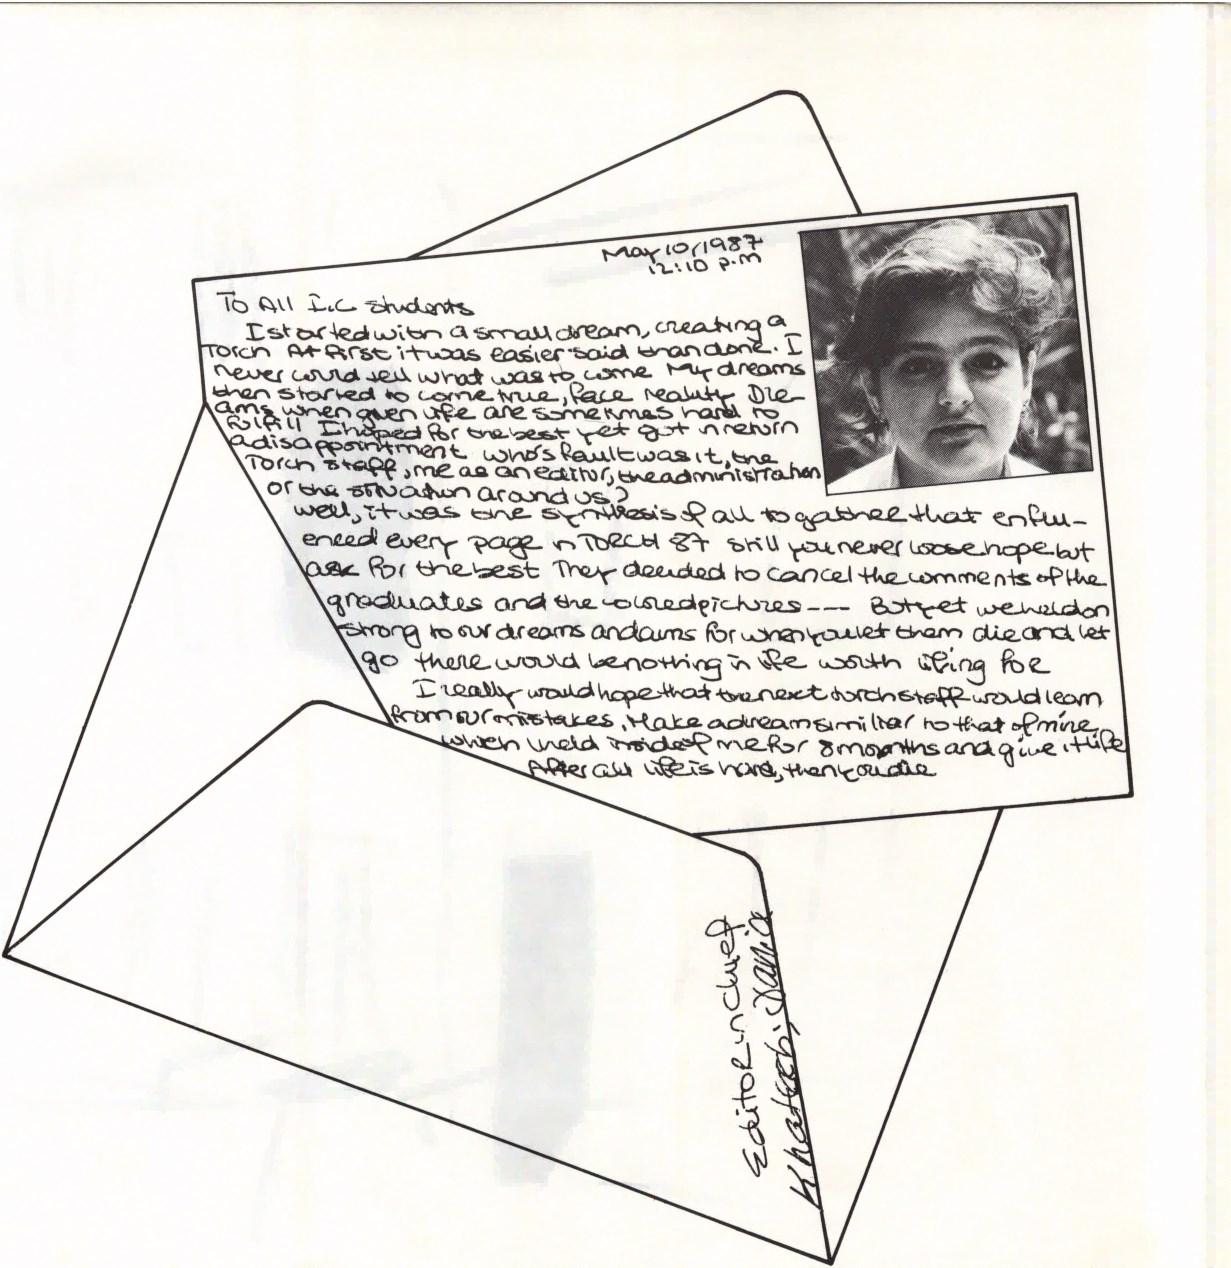 May 10/1987
12:10 p.m
To All I.C students
I started with a small dream, creating a
Torch At first it was easier said than done. I
never could tell what was to come My dreams
then started to come true, face reality Dre-
ams when given life are sometimes hard to
fulfill I hoped for the best yet got in return
a disappointment who's fault was it, the
Torch staff, me as an editor, the administration
or the situation around us?
well, it was the synthesis of all to gather that enflu-
enced every page in TORCH 87 still you never loose hope but
ask for the best They decided to cancel the comments of the
graduates and the colored pictures --- But yet we held on
strong to our dreams and aims for when you let them die and let
go there would be nothing in life worth living for
I really would hope that the next torch staff would learn
from our mistakes, Make a dream similiar to that of mine,
which I held inside of me for 8 months and give it life
After all life is hard, then you die
Editor in chief
Khateeb, Dania